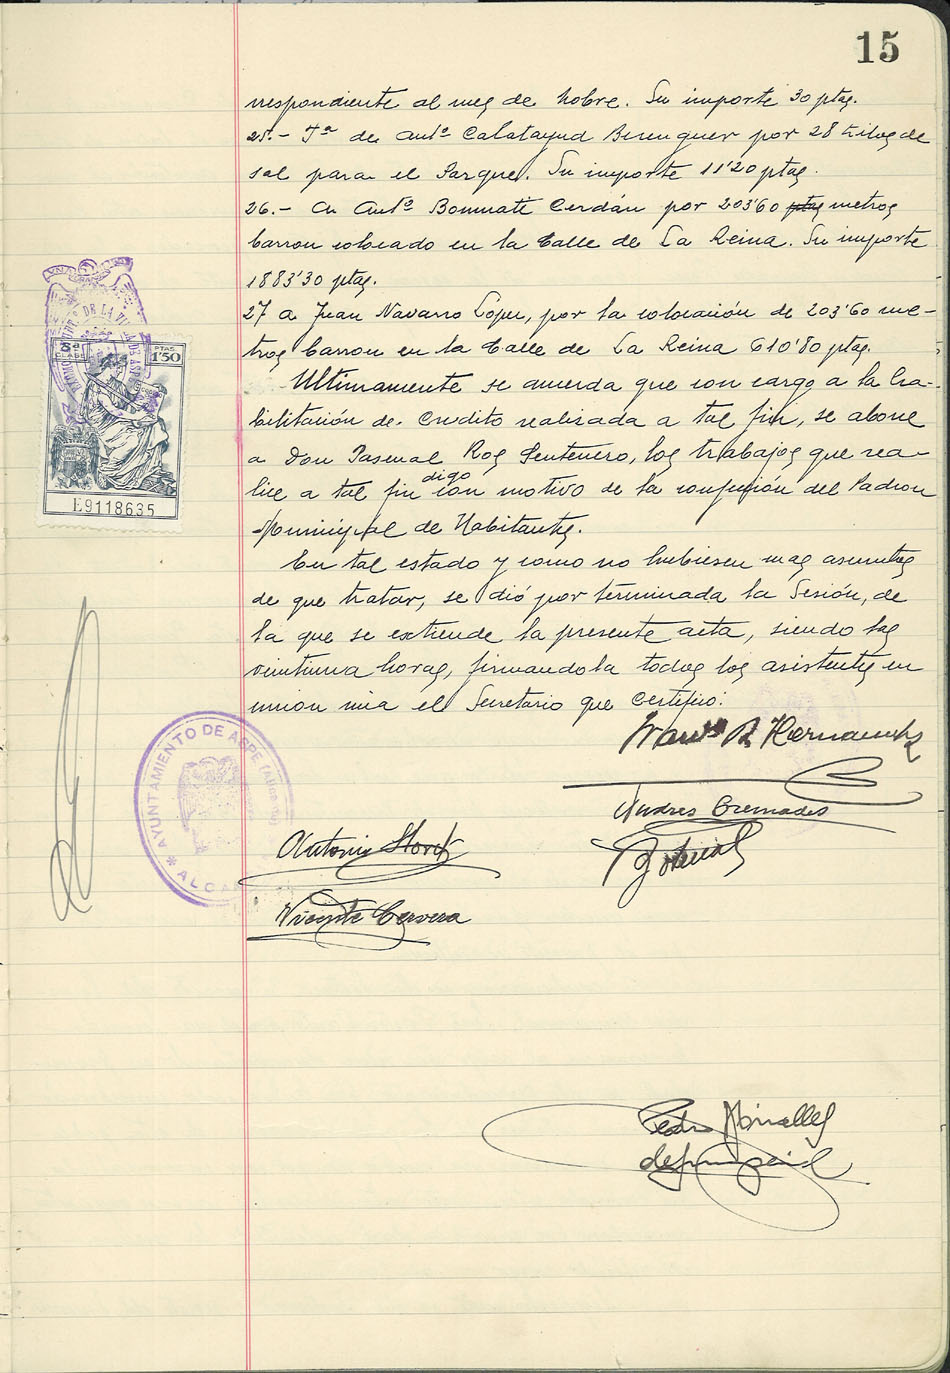 15
rrespondiente al mes de Nobre. Su importe 30 ptas.
25.- Fª de Antº Calatayud Berenguer por 28 kilos de
sal para el Parque. Su importe 11'20 ptas.
26.- A Antº Bonmatí Cerdán por 203'60 ptas metros
barron colocado en la Calle de La Reina. Su importe
1883'30 ptas.
27 a Juan Navarro López, por la colocación de 203'60 me-
tros barron en la Calle de La Reina 610'80 ptas.
Ultimamente se acuerda que con cargo a la ha-
bilitación de credito realizada a tal fin, se abone
a Don Pascual Ros Sentenero, los trabajos que rea-
lice a tal fin digo con motivo de la confección del Padron
Municipal de Habitantes.
En tal estado y como no hubiesen mas asuntos
de que tratar, se dió por terminada la Sesión, de
la que se extiende la presente acta, siendo las
veintiuna horas, firmandola todos los asistentes en
union mia el Secretario que certifico:
Hernandez
Andres Cremades
Antonio
Vicente Cervera
Pedro Miralles
AYUNTAMIENTO DE ASPE (Alicante)
8ª CLASE
PTAS 1'50
E9118635